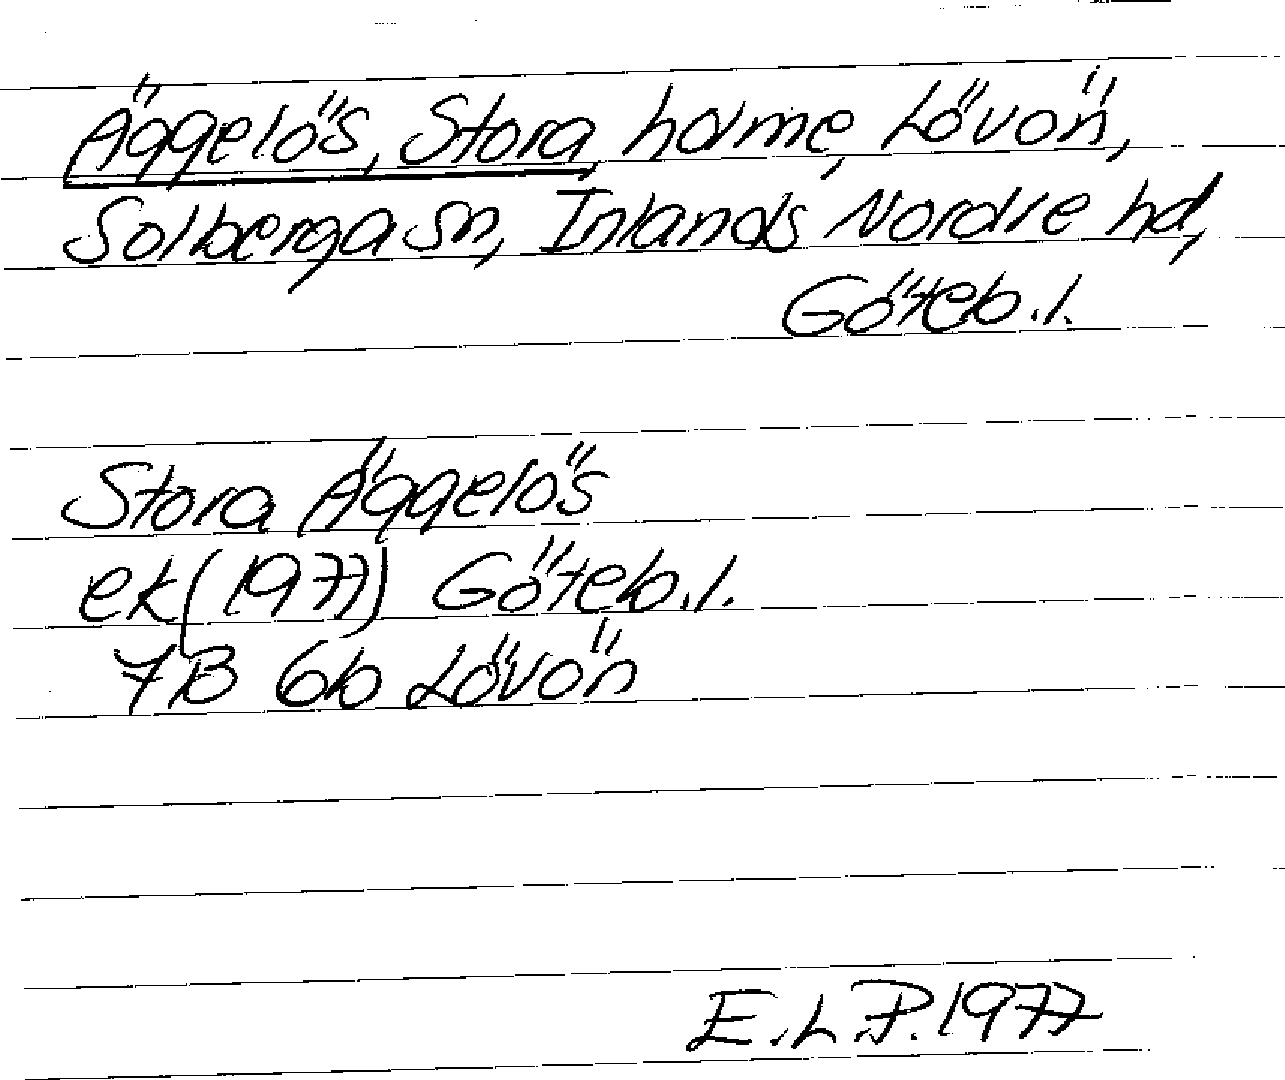 Äggelös, Stora, holme, Lövön,
Solberga sn, Inlands Nordre hd,
Göteb. l.
Stora Äggelös
ek (1977) Göteb. l.
7B 6b Lövön
E.L.P. 1977